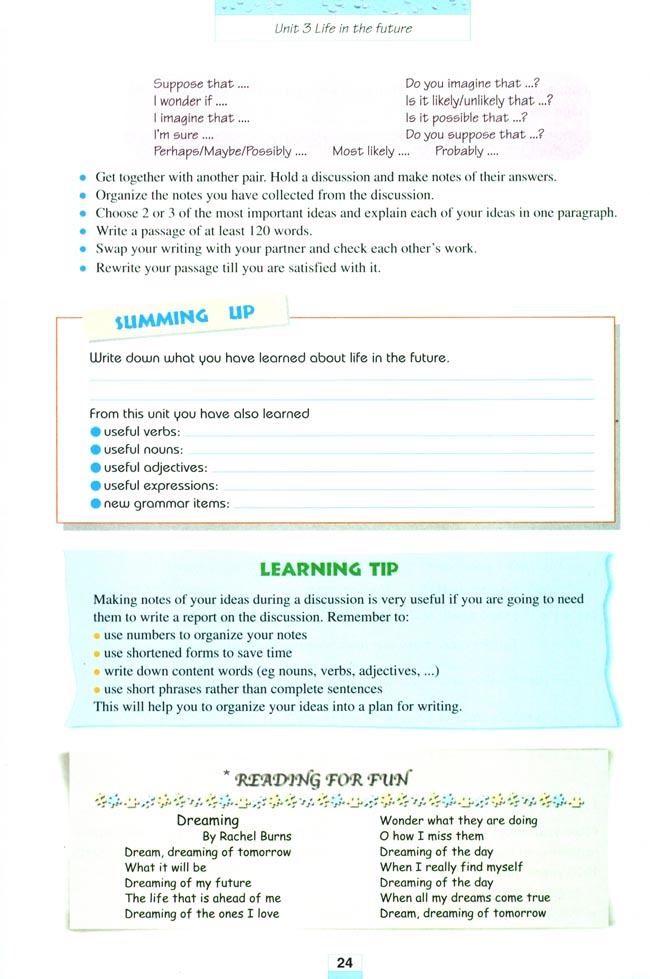 Unit 3 Life in the future
Suppose that ....
I wonder if ....
I imagine that ....
I'm sure ....
Do you imagine that ...?
Is it likely/unlikely that ...?
Is it possible that ...?
Do you suppose that ...?
Perhaps/Maybe/Possibly .... Most likely .... Probably ....
• Get together with another pair. Hold a discussion and make notes of their answers.
• Organize the notes you have collected from the discussion.
• Choose 2 or 3 of the most important ideas and explain each of your ideas in one paragraph.
• Write a passage of at least 120 words.
• Swap your writing with your partner and check each other's work.
• Rewrite your passage till you are satisfied with it.
SUMMING UP
Write down what you have learned about life in the future.
From this unit you have also learned
● useful verbs:
● useful nouns:
● useful adjectives:
● useful expressions:
● new grammar items:
LEARNING TIP
Making notes of your ideas during a discussion is very useful if you are going to need
them to write a report on the discussion. Remember to:
• use numbers to organize your notes
• use shortened forms to save time
• write down content words (eg nouns, verbs, adjectives, ...)
• use short phrases rather than complete sentences
This will help you to organize your ideas into a plan for writing.
* READING FOR FUN
Dreaming
By Rachel Burns
Dream, dreaming of tomorrow
What it will be
Dreaming of my future
The life that is ahead of me
Dreaming of the ones I love
Wonder what they are doing
O how I miss them
Dreaming of the day
When I really find myself
Dreaming of the day
When all my dreams come true
Dream, dreaming of tomorrow
24